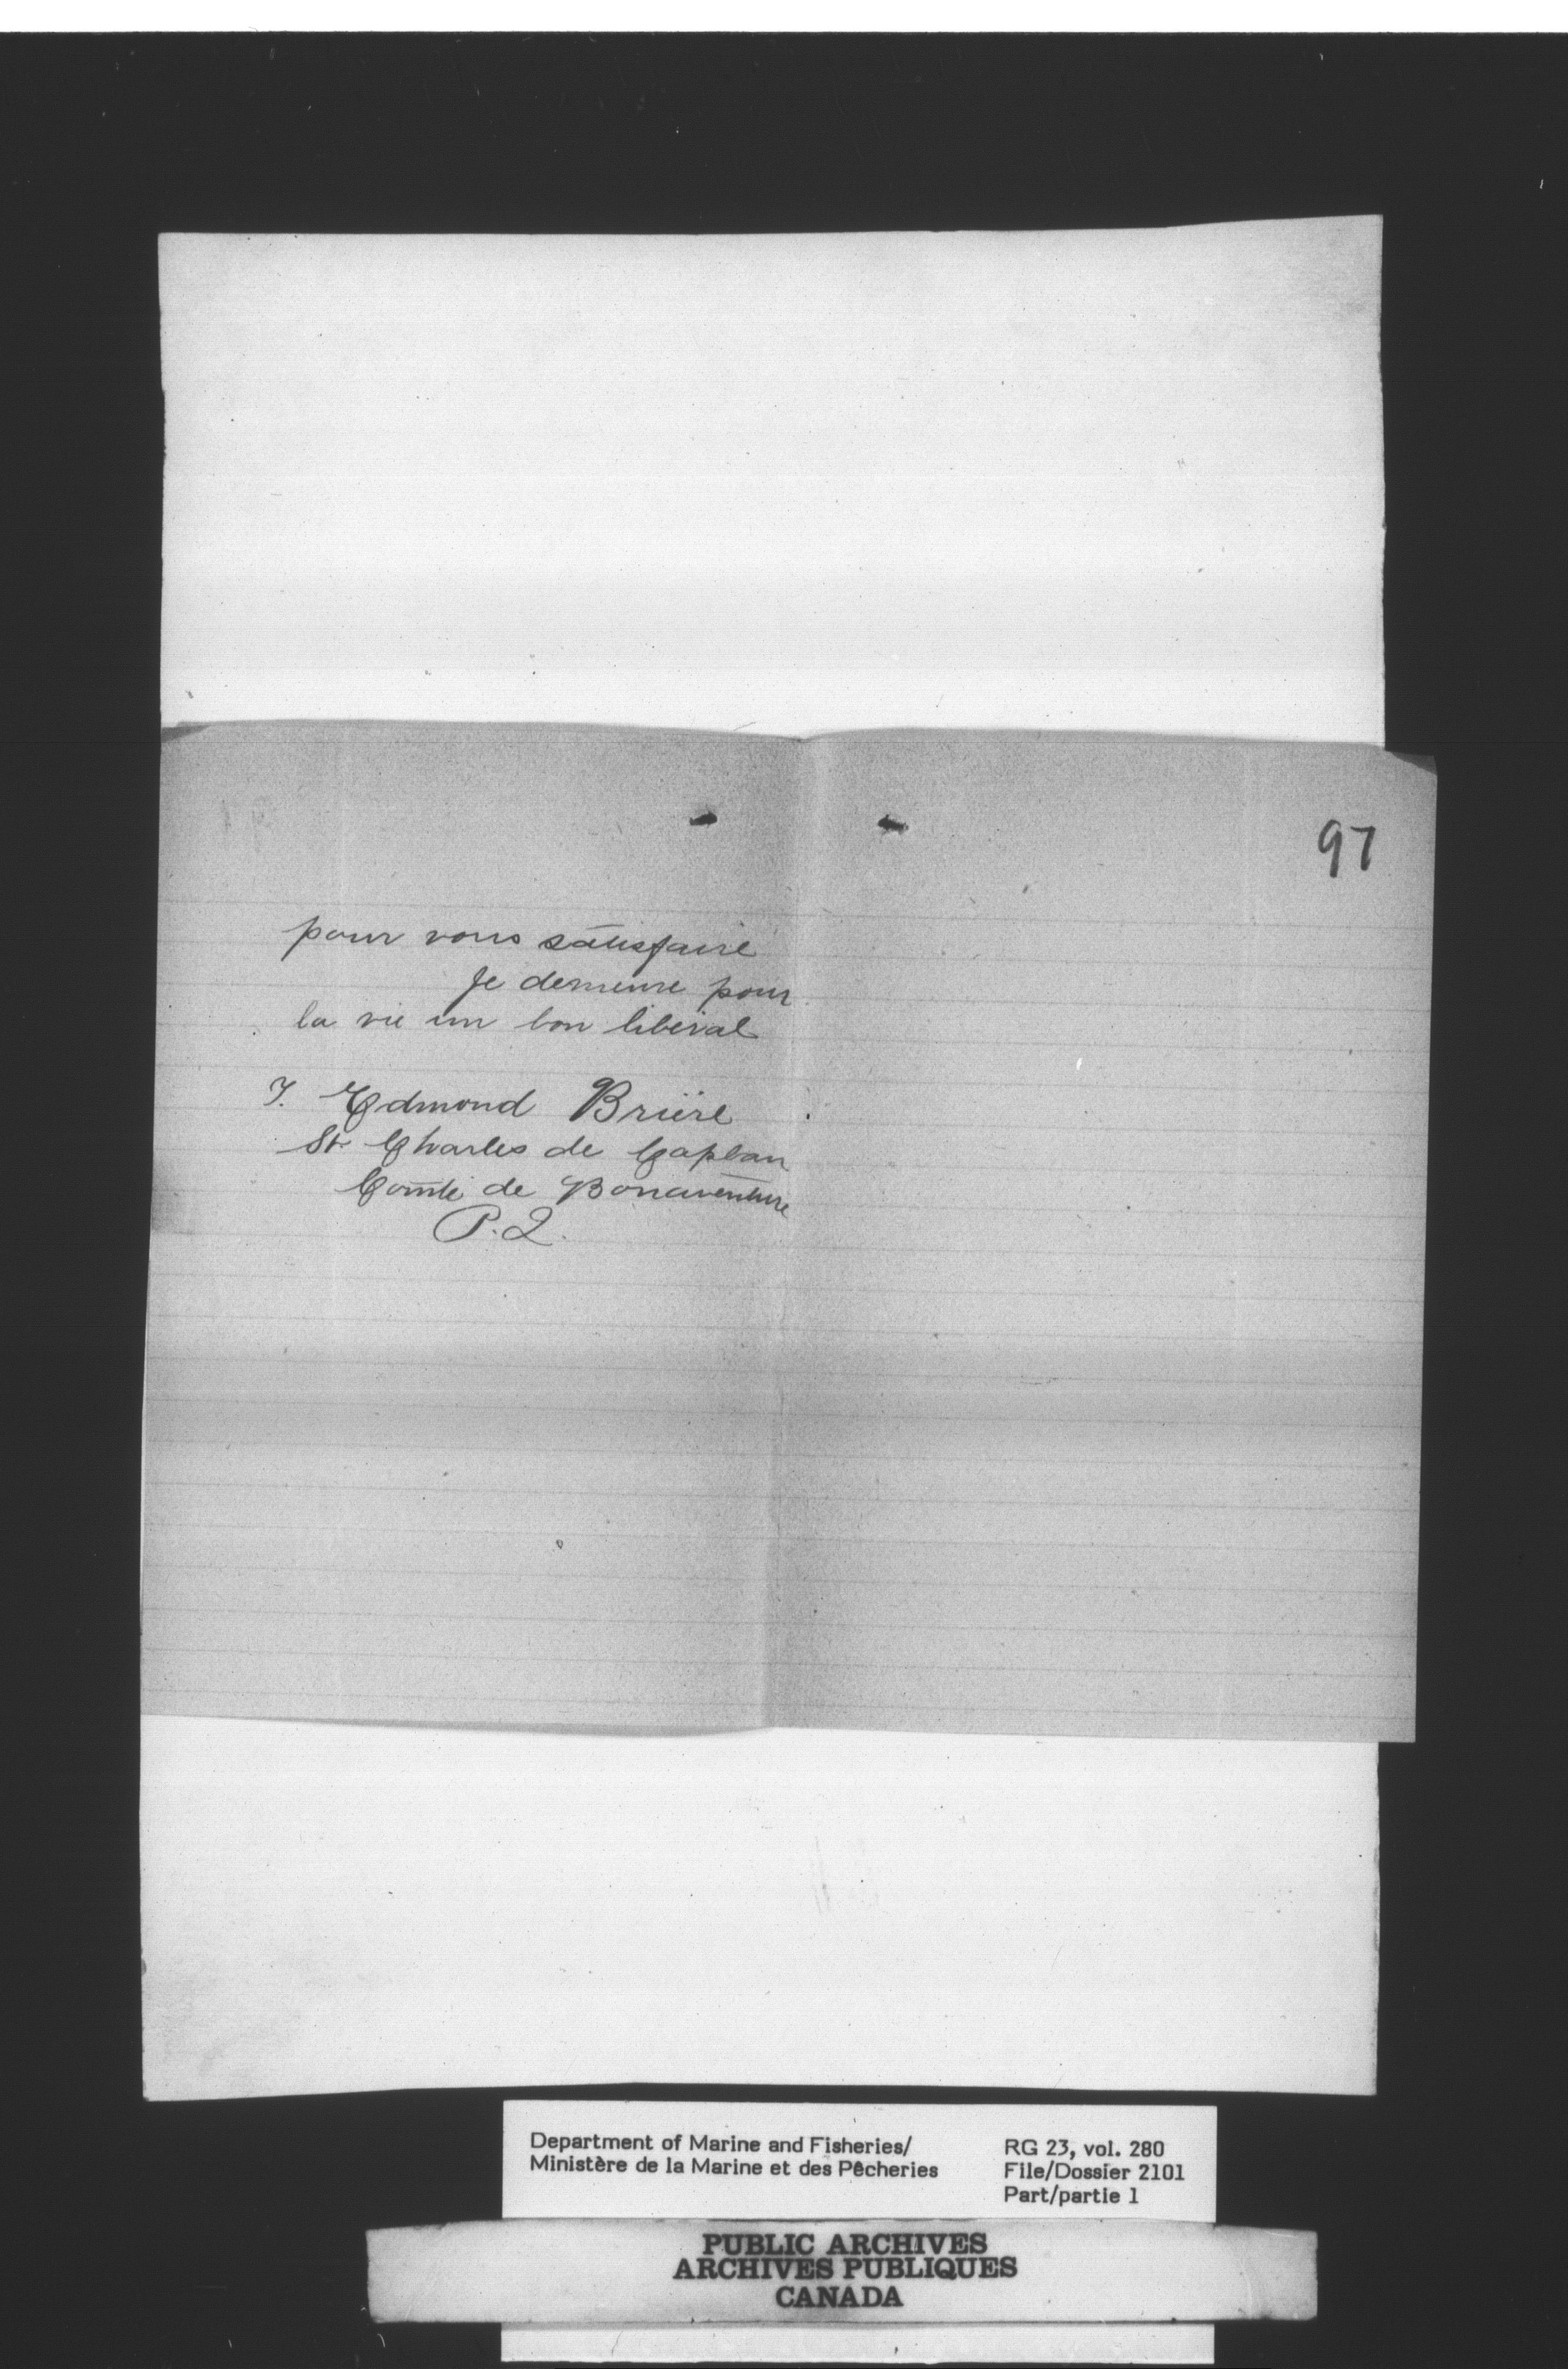 97
pour vous satisfaire
Je demeure pour
la vie un bon libéral
J. Edmond Brière
St Charles de Caplan
Comté de Bonaventure
P.Q.
Department of Marine and Fisheries/
Ministère de la Marine et des Pêcheries
RG 23, vol. 280
File/Dossier 2101
Part/partie 1
PUBLIC ARCHIVES
ARCHIVES PUBLIQUES
CANADA